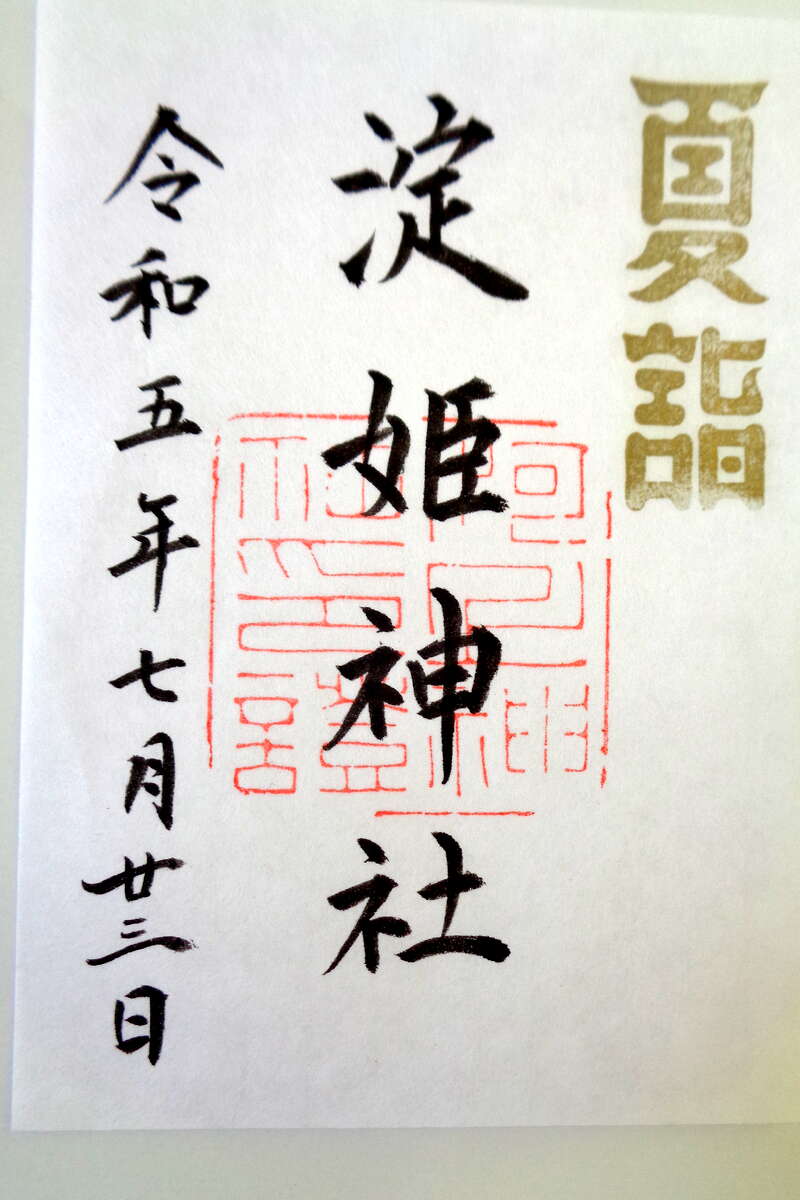 夏詣
淀姫神社
令和五年七月廿三日